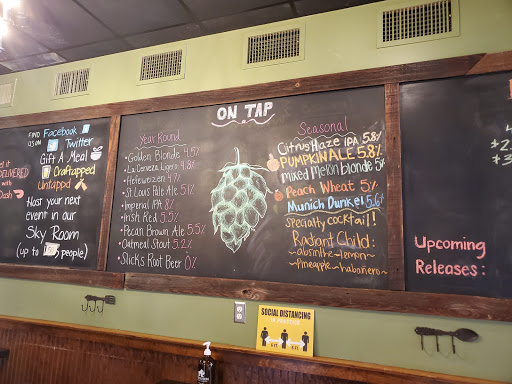 FIND US ON
Facebook
Twitter
Gift A Meal
Craftapped
Untappd
Host your next
event in our
Sky Room
(up to people)
DELIVERED
with
Dash
ON TAP
Year Round
• Golden Blonde 4.5%
• La Cerveza Ligera 4.8%
• Hefeweizen 4.7%
• St Louis Pale Ale 5.1%
• Imperial IPA 8%
• Irish Red 5.5%
• Pecan Brown Ale 5.5%
• Oatmeal Stout 5.2%
• Slick's Root Beer 0%
Seasonal
Citrus Haze IPA 5.8%
PUMPKIN ALE 5.8%
mixed Melon blonde 5%
Peach Wheat 5%
Munich Dunkel 5.6%
specialty cocktail!
Radiant Child:
~absinthe~lemon~
~pineapple~habanero~
Upcoming
Releases:
SOCIAL DISTANCING